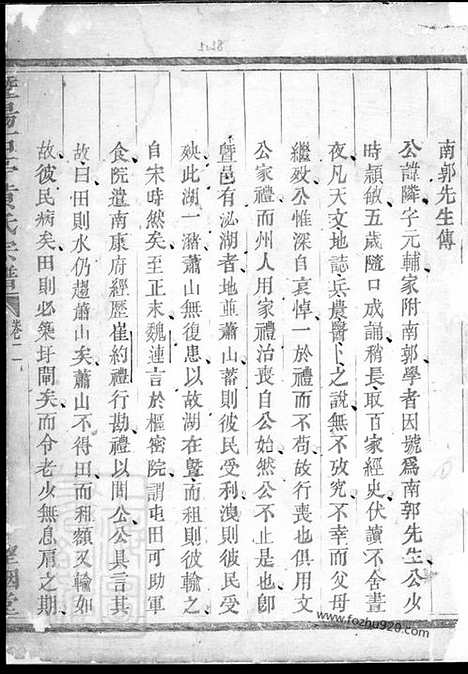 南郭先生傳
公諱隣字元輔家附南郭學者因號爲南郭先生公少
時頴敏五歲隨口成誦稍長取百家經史伏讀不舍晝
夜凡天文地誌兵農醫卜之說無不攷究不幸而父母
繼歿公惟深自哀悼一於禮而不苟故行喪也俱用文
公家禮而州人用家禮治喪自公始然公不止是也卽
曁邑有泌湖者地並蕭山蓄則彼民受利洩則彼民受
殃此湖一瀦蕭山無復患以故湖在曁而租則彼輸之
自宋時然矣至正末魏連言於樞密院謂屯田可助軍
食院遣南康府經歷崔約禮行勘禮以問公公具言其
故曰田則水仍趨蕭山矣蕭山不得田而租額又輸如
故彼民病矣田則必築圩閘矣而令老少無息肩之期
氏宗譜
卷二
堂
www.fozhu920.com